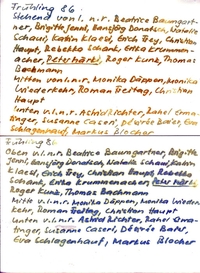 Frühling 86.
Stehend von l. n. r. Beatrice Baumgart-
ner, Brigitte Jenni, Natalie
Schaui, Katin Klaesi, Erich Frey, Christian
Haupt, Rebekka Schank, Erika Krummen-
acher, Peter Märki, Roger Kunz, Thomas
Bachmann
Mitten von l. n. r. Monika Däppen, Monika
Wiederkehr, Roman Freitag, Christian
Haupt
Unten v. l. n. r. Astrid Richter, Rahel Ema-
tinger, Suzanne Caseri, Désirée Bater, Eva
Schlagenhauf, Markus Blocher
Frühling 86
Oben v. l. n. r. Beatrice Baumgartner, Brigitte
Jenni, Natalie Schaui, Katin
Klaesi, Erich Frey, Christian Haupt, Rebekka
Schank, Erika Krummenacher, Peter Märki,
Roger Kunz, Thomas Bachmann
Mitte v. l. n. r. Monika Däppen, Monika Wieder-
kehr, Roman Freitag, Christian Haupt
Unten v. l. n. r. Astrid Richter, Rahel Ema-
tinger, Suzanne Caseri, Désirée Bater,
Eva Schlagenhauf, Markus Blocher